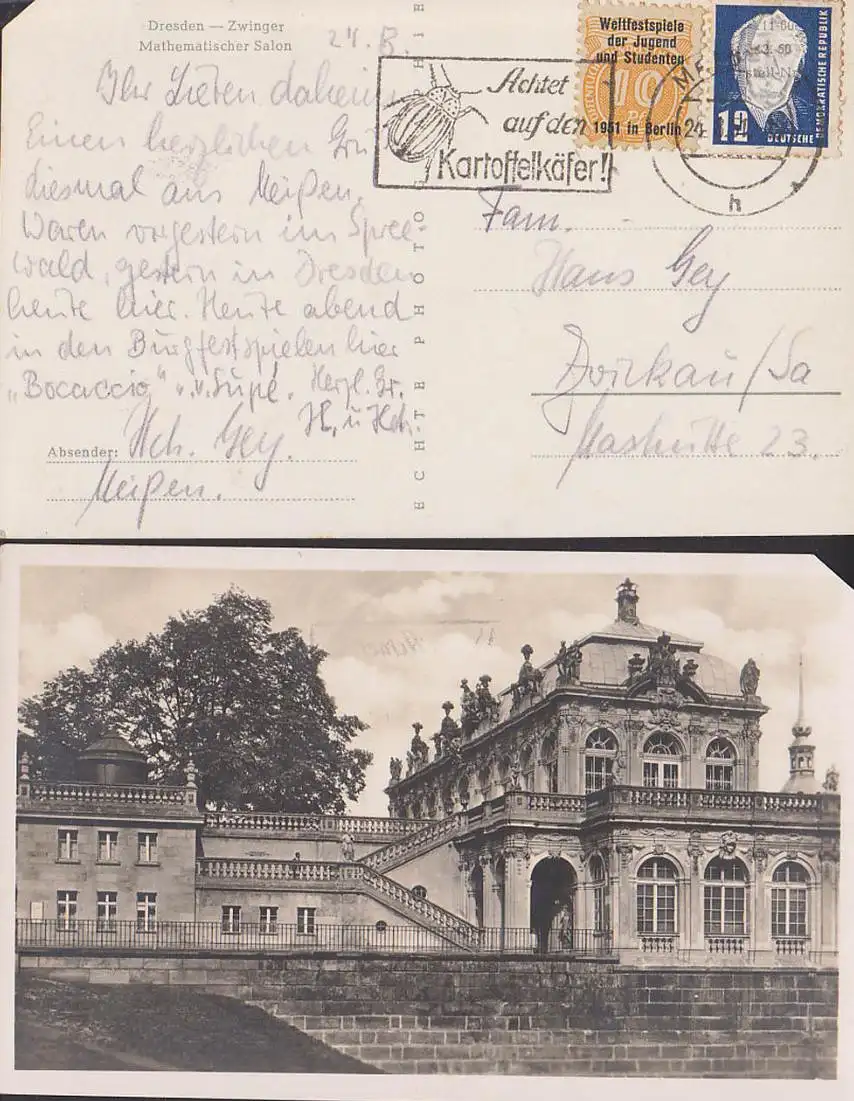 Dresden — Zwinger
Mathematischer Salon
24. 8.
Ihr Lieben daheim
Einen herzlichen Gru
diesmal aus Meißen.
Waren vorgestern im Spree-
wald, gestern in Dresden
heute hier. Heute abend
in den Burgfestspielen hier
„Bocaccio" v. v. Supé. Herzl. Gr.
H. u. Hch.
Absender: Hch. Gey.
Meißen.
ECHTE PHOTO
Achtet
auf den
Kartoffelkäfer!
Weltfestspiele
der Jugend
und Studenten
10
1951 in Berlin
12
DEUTSCHE
DEMOKRATISCHE REPUBLIK
ME
24.
h
Fam.
Hans Gey
Zwickau/Sa
23.